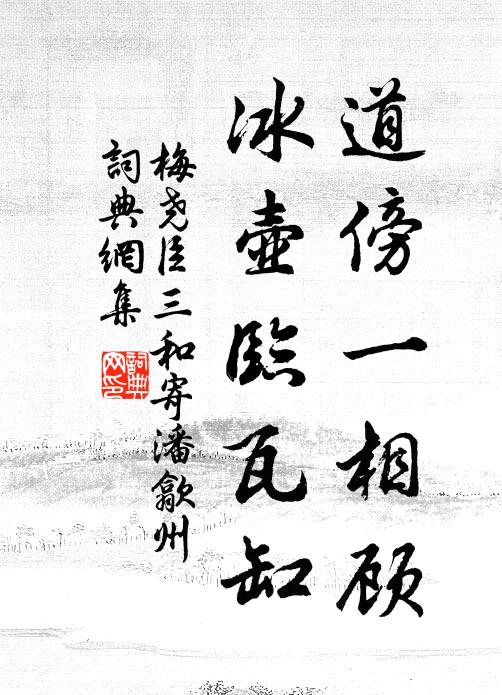 道傍一相顾
冰壶臨瓦缸
梅尧臣三和寄潘歙州
詞典網集
詞典网印